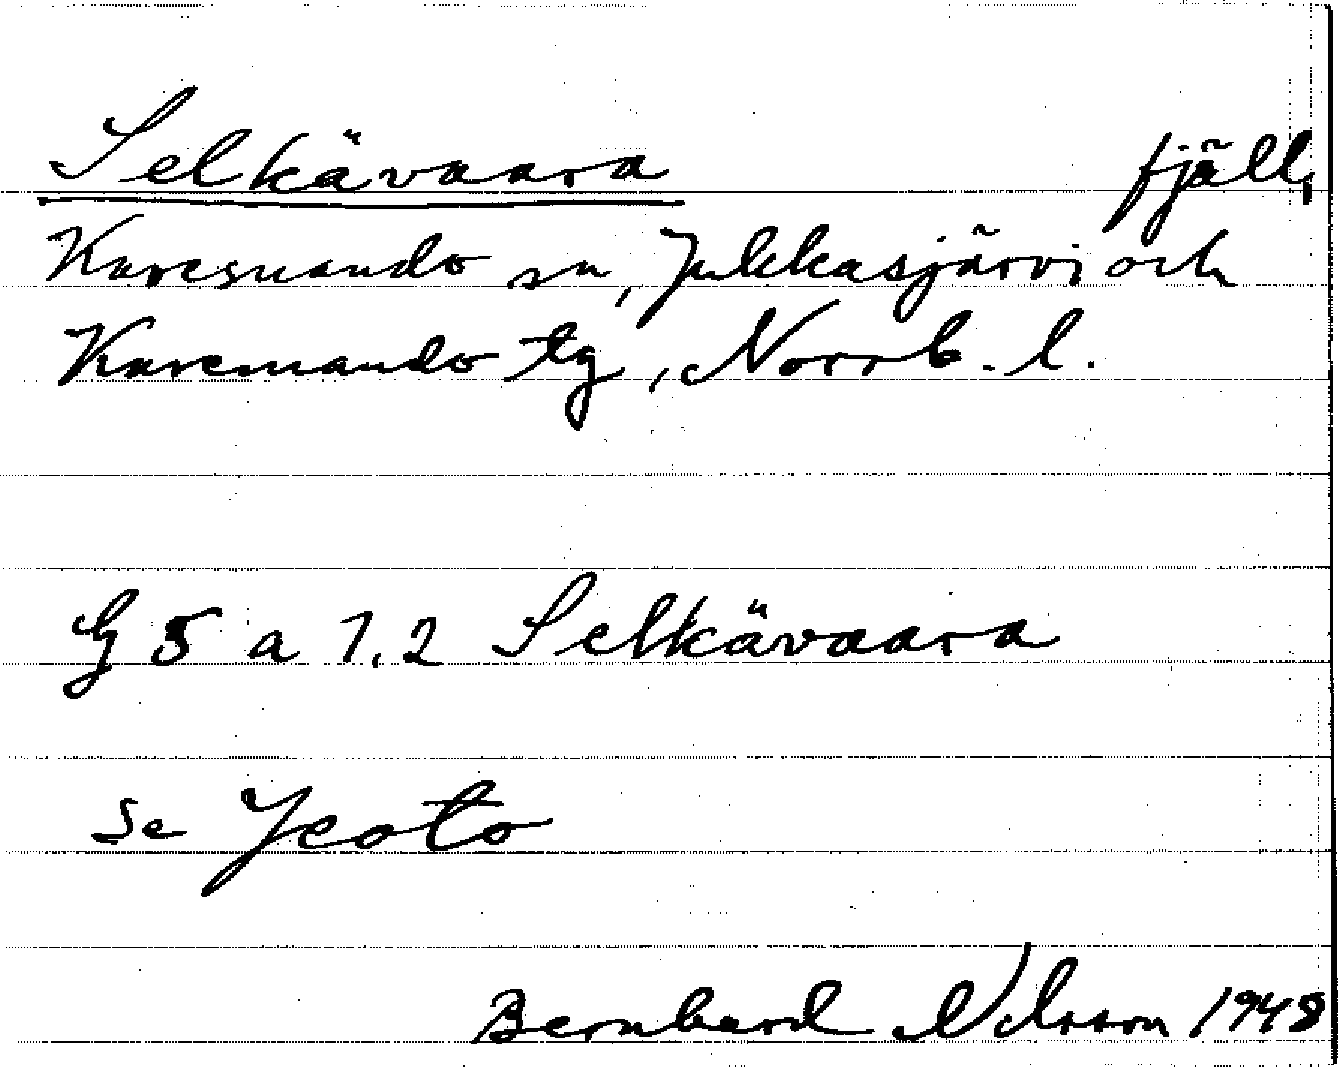 Selkävaara fjäll,
Karesuando sn, Jukkasjärvi och
Karesuando tg, Norrb. l.
G 5 a 1.2 Selkävaara
se Jeoto
Bernhard Nilsson 1948